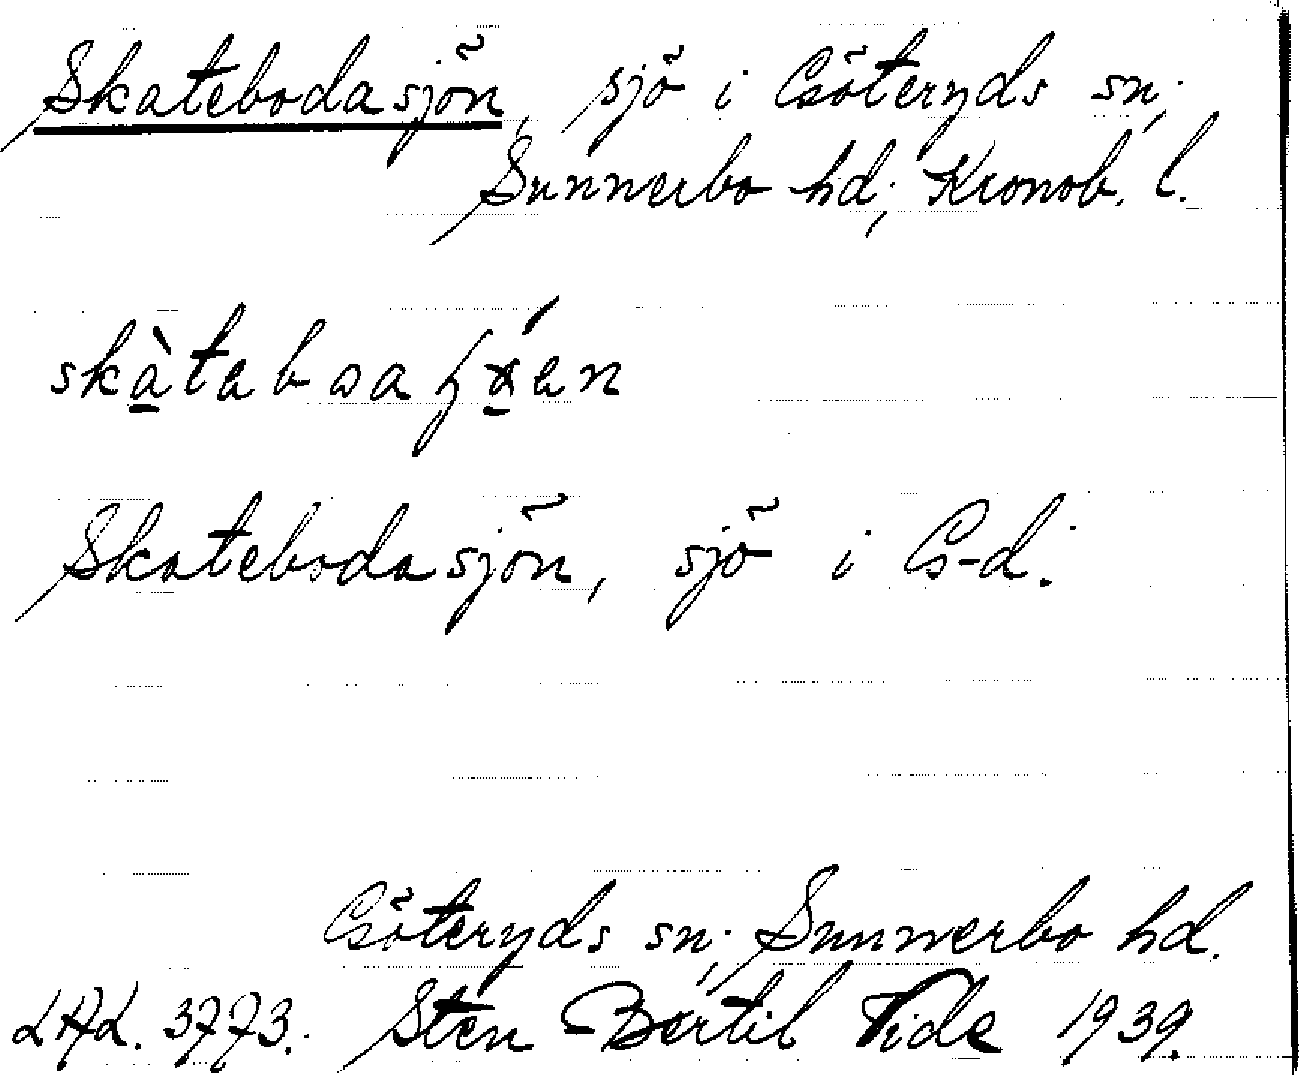 Skatebodasjön, sjö i Göteryds sn;
Sunnerbo hd; Kronob. l.
Skatebodasjön, sjö i G-d.
Göteryds sn; Sunnerbo hd.
LAL. 3773. Sten-Bertil Vide 1939.